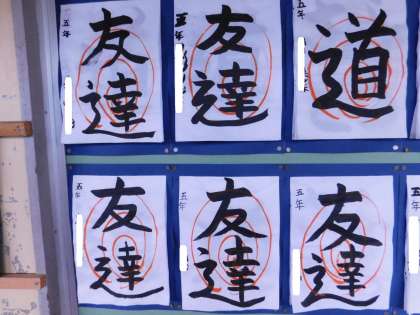 五年
友達
五年
友達
五年
道
五年
友達
五年
友達
五年
友達